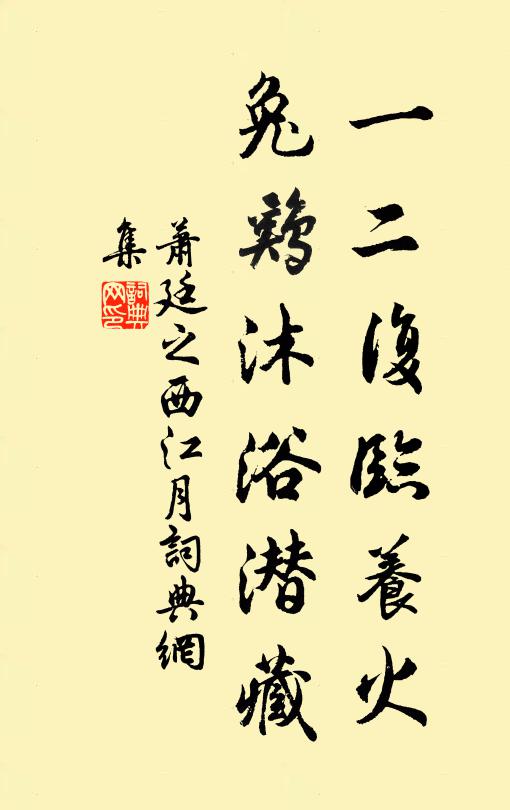 一二復臨養火
兔鷄沐浴潜藏
蕭廷之西江月詞典網
集
詞典
网印